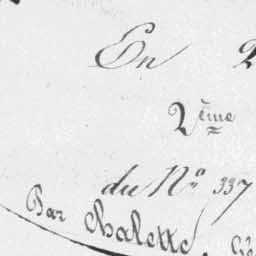 En 2
2ème
du No 337
Par Chalette, Gé